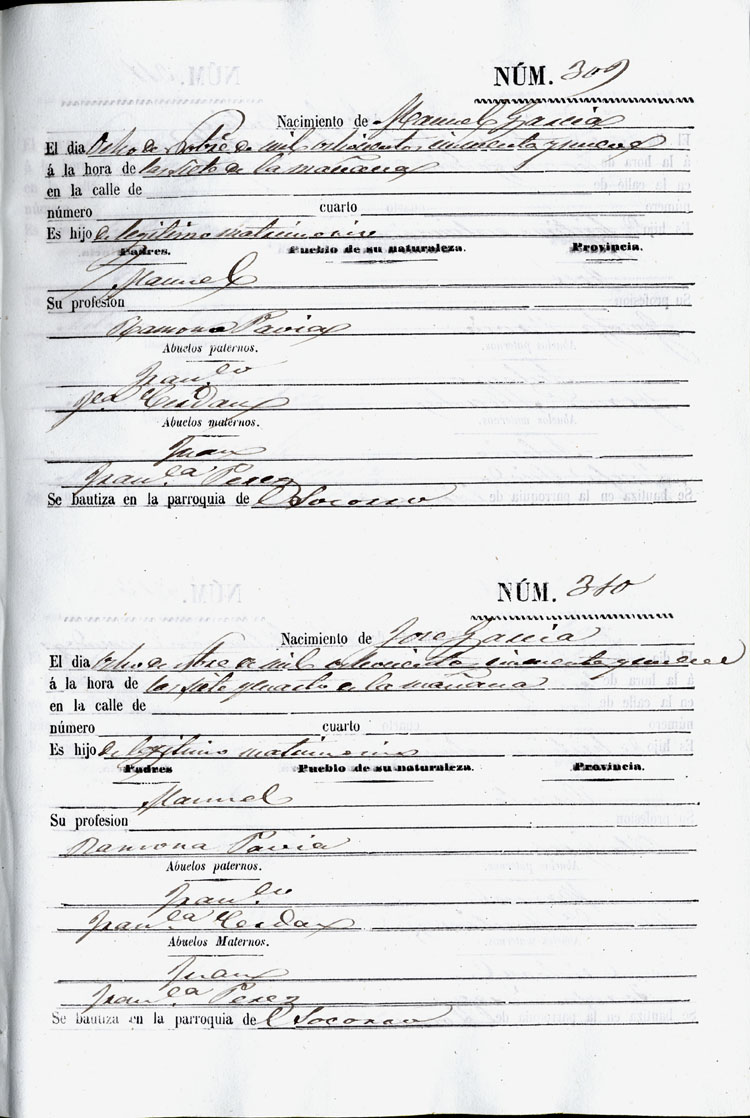 NÚM. 309
Nacimiento de Manuel Garcia
El dia Ocho de 8bre de mil ochocientos cincuenta y nueve
á la hora de las siete de la mañana
en la calle de
número cuarto
Es hijo de legitimo matrimonio
Padres. Pueblo de su naturaleza. Provincia.
Manuel
Su profesion
Ramona Pavia
Abuelos paternos.
Fran.co
Fca Cerdan
Abuelos maternos.
Juan
Fran.ca Perez
Se bautiza en la parroquia de el Socorro
NÚM. 310
Nacimiento de Jose Garcia
El dia Ocho de 8bre de mil ochocientos cincuenta y nueve
á la hora de las siete y cuarto de la mañana
en la calle de
número cuarto
Es hijo de legitimo matrimonio
Padres Pueblo de su naturaleza. Provincia.
Manuel
Su profesion
Ramona Pavia
Abuelos paternos.
Fran.co
Fran.ca Cerda
Abuelos Maternos.
Juan
Fran.ca Perez
Se bautiza en la parroquia de el Socorro